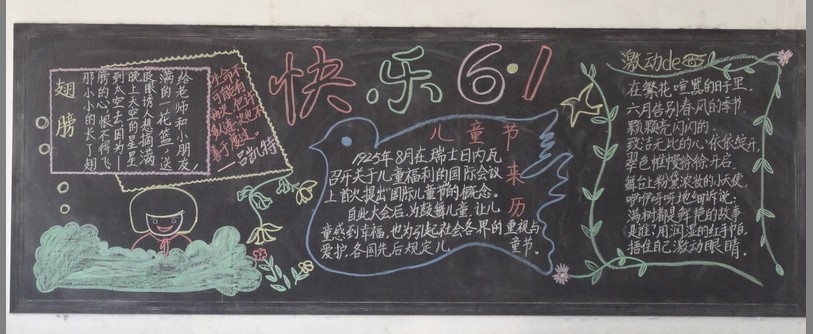 快乐 6·1
翅膀
那小小的长了翅
膀的心，恨不得飞
到太空去，因为
晚上天空的星星
眨眼诱人，想摘满
满的一花篮，送
给老师和小朋友
——吕凯特
儿童节来历
1925年8月在瑞士日内瓦
召开关于儿童福利的国际会议
上首次提出“国际儿童节”的概念。
自此大会后，为鼓舞儿童，让儿
童感到幸福，也为引起社会各界的重视与
爱护，各国先后规定儿童节。
激动de
在繁花喧嚣的日子里，
六月告别春风的季节，
颗颗亮闪闪的，
致洁无比的心，依依绽开，
翠色帷幔徐徐开启，
舞台上粉黛浓妆的小天使，
咿咿呀呀地细诉说：
满树靓艳的故事
是谁？用润湿的红手帕，
捂住自己激动眼睛。